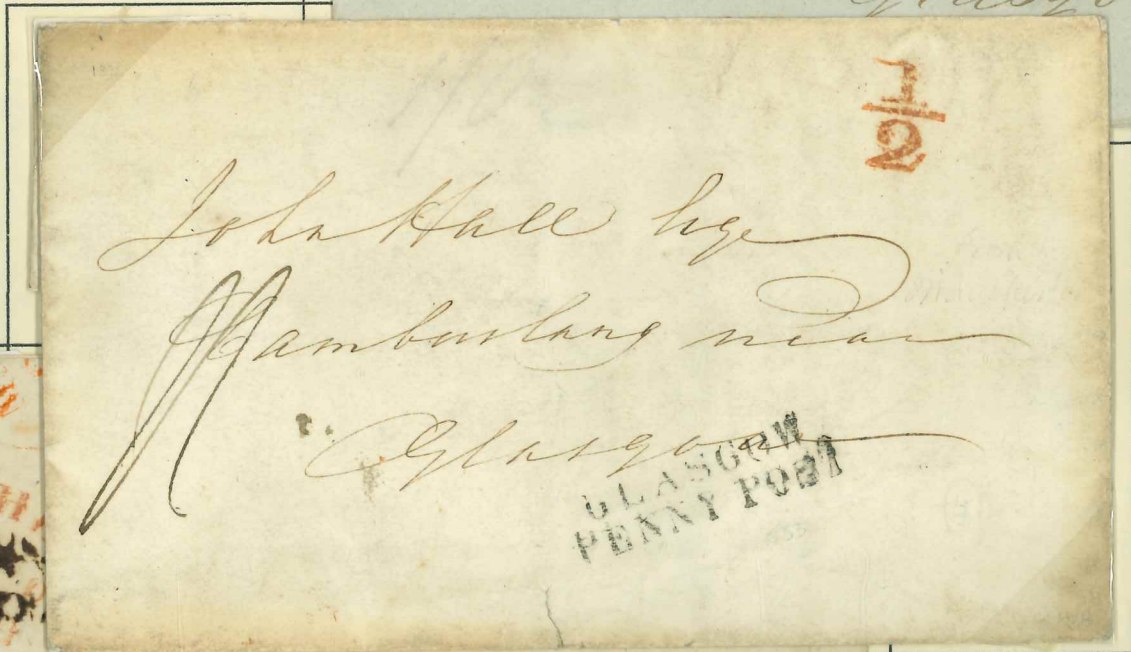 1
2
John Hall Esqe
Cambuslang near
Glasgow
GLASGOW
PENNY POST